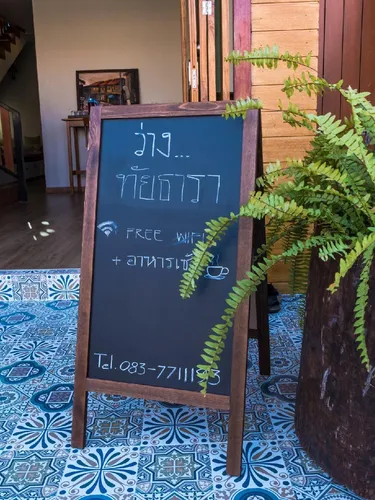 ว่าง...
ทัยธารา
FREE WIFI
+ อาหารเช้า
Tel. 083-7711183